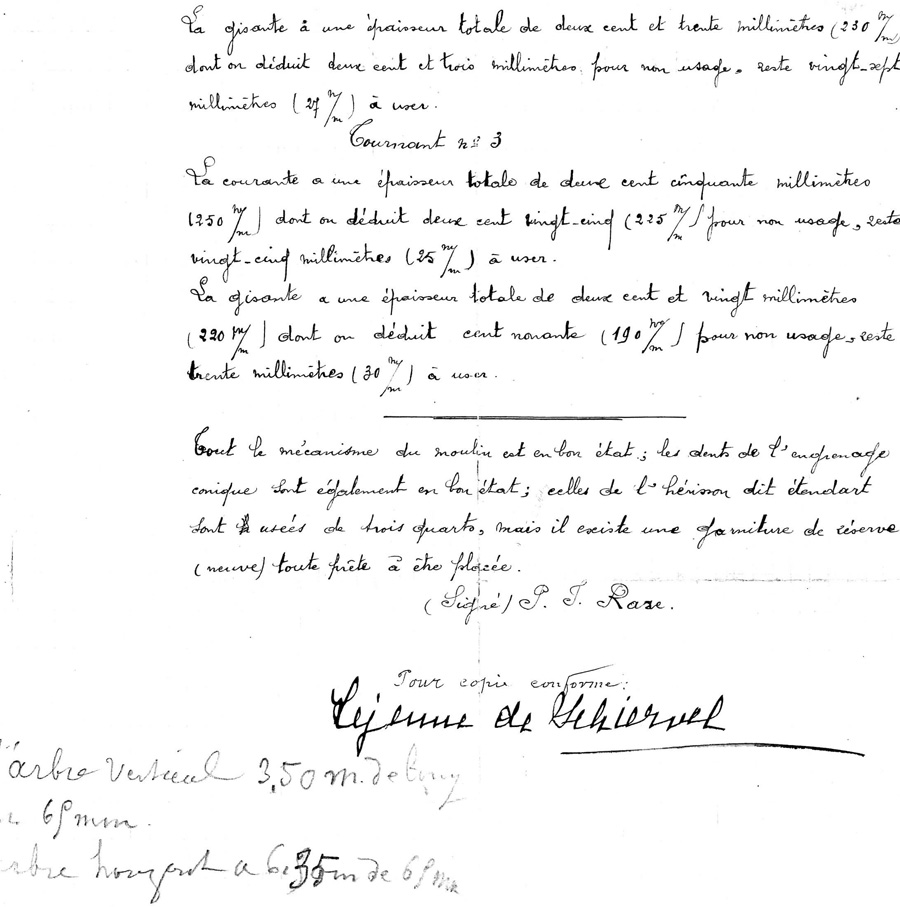 La gisante à une épaisseur totale de deux cent et trente millimètres (230 m/m)
dont on déduit deux cent et trois millimètres pour non usage, reste vingt-sept
millimètres (27 m/m) à user.
Tournant nº 3
La courante a une épaisseur totale de deux cent cinquante millimètres
(250 m/m) dont on déduit deux cent vingt-cinq (225 m/m) pour non usage, reste
vingt-cinq millimètres (25 m/m) à user.
La gisante a une épaisseur totale de deux cent et vingt millimètres
(220 m/m) dont on déduit cent nonante (190 m/m) pour non usage, reste
trente millimètres (30 m/m) à user.
Tout le mécanisme du moulin est en bon état; les dents de l'engrenage
conique sont également en bon état; celles de l'hérisson dit étendart
sont usées de trois quarts, mais il existe une garniture de réserve
(neuve) toute prête à être placée.
(Signé) P. J. Raze.
Pour copie conforme:
Lejeune de Schiervel
l'arbre vertical 3,50 m. de
mm.
arbre a 6.35 m de